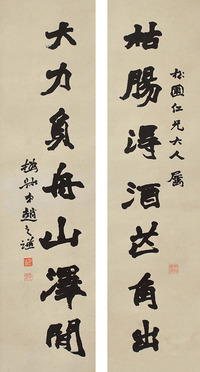 枯腸得酒芒角出
松園仁兄大人屬
大力負舟山澤間
趙之謙